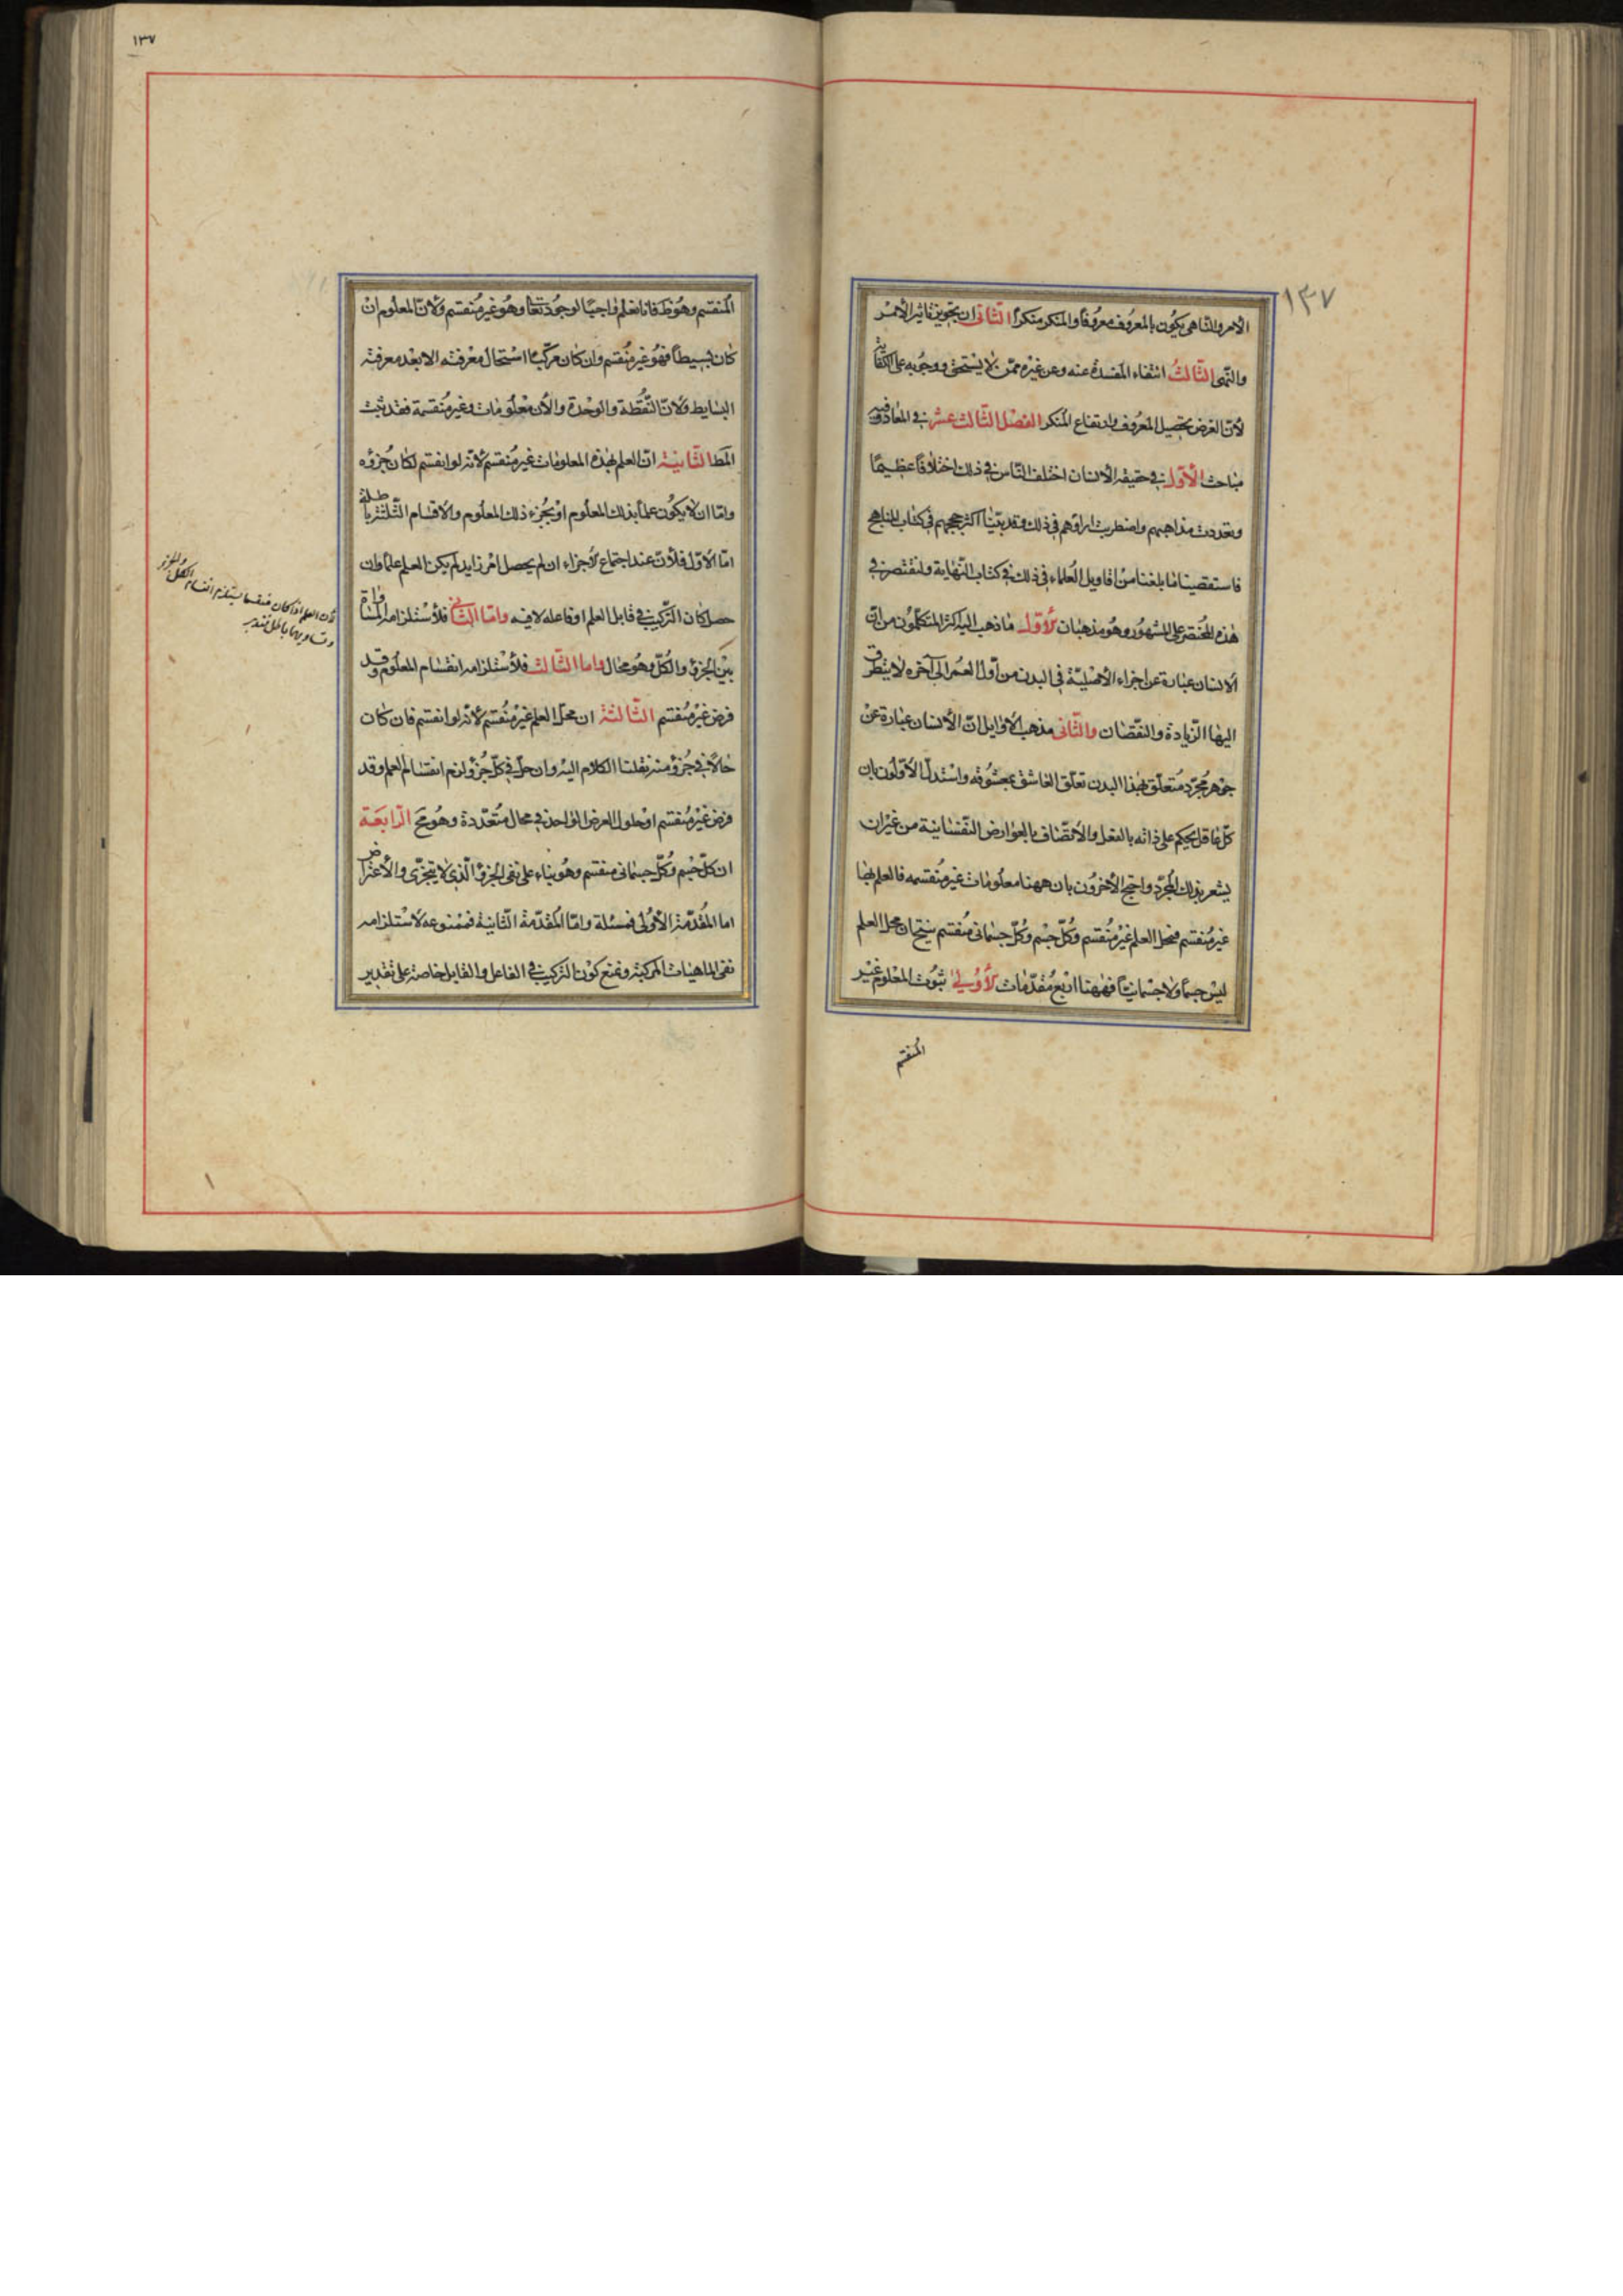 ١٣٧
الامر والناهی بکون بالمعروف معروفًا والمنکر منکرًا الثانی ان یجوز تاثیر الأمر
والنهی الثالث انتفاء المفسدة عنه وعن غیره ممن لا یستحق ووجوبه علی الکفایة
لأن الغرض تحصیل المعروف وارتفاع المنکر الفصل الثالث عشر فی المعاد وفیه
مباحث الأول فی حقیقة الانسان اختلف الناس فی ذلک اختلافًا عظیمًا
وتعددت مذاهبهم واضطربت اراؤهم فی ذلک وقد بیّنّا اکثر حججهم فی کتاب المناهج
فاستقصینا ما بلغنا من اقاویل العلماء فی ذلک فی کتاب النهایة ولنقتصر فی
هذه المختصر علی المشهور وهو مذهبان الأول ما ذهب الیه اکثر المتکلمون من ان
الانسان عبارة عن اجزاء الأصلیّة فی البدن من أول العمر الی آخره لا یتطرق
الیها الزیادة والنقصان والثانی مذهب الأوایل انّ الأنسان عبارة عن
جوهر مجرّد متعلّق بهذا البدن تعلّق العاشق بمعشوقه واستدل الأولون بان
کلّ عاقل یحکم علی ذاته بالفعل والأتصاف بالعوارض النفسانیة من غیر ان
یشعر بذلک المجرّد واحتج الأخرون بان ههنا معلومات غیر منقسمه فالعلم بها
غیر منقسم فمحل العلم غیر منقسم وکلّ جسم وکلّ جسمانی منقسم ینتج ان محل العلم
لیس جسمًا ولا جسمانیًا فههنا اربع مقدّمات الأولی ثبوت المعلوم غیر
المنقسم
١٣٧
المنقسم وهو ظ فانا نعلم واجبًا لوجود تعا وهو غیر منقسم ولأن المعلوم ان
کان بسیطًا فهو غیر منقسم وان کان مرکّبًا استحال معرفته الا بعد معرفة
البسایط ولأن النقطة والوحدة والأن معلومات وغیر منقسمة فقد ثبت
المط الثانیة انّ العلم بهذه المعلومات غیر منقسم لأنه لو انقسم لکان جزؤه
وامّا ان لا یکون علمًا بذلک المعلوم او بجزء ذلک المعلوم والأقسام الثلثة باطلة
امّا الأول فلأن عند اجتماع الأجزاء ان لم یحصل امر زاید لم یکن العلم علمًا وان
حصل کان الترکیب فی قابل العلم او فاعله لا فیه وامّا الثانی فلأستلزامه المساواة
بین الجزؤ والکلّ وهو محال واما الثالث فلأستلزامه انقسام المعلوم وقد
فرض غیر منقسم الثالثة ان محلّ العلم غیر منقسم لأنه لو انقسم فان کان
حالًا فی جزؤ منه نقلنا الکلام الیه وان حلّ فی کلّ جزؤ لزم انقسام العلم وقد
فرض غیر منقسم او حلول العرض الواحد فی محال متعدّدة وهو مح الرابعة
ان کلّ جسم وکلّ جسمانی منقسم وهو بناء علی نفی الجزؤ الذی لا یتجزی والأعتراض
اما المقدّمة الأولی فمسئلة وامّا المقدّمة الثانیة فممنوعه لاستلزامه
نفی الماهیات المرکبة ونمنع کون الترکیب فی الفاعل والقابل خاصة علی تقدیر
لأن العلم اذا کان منقسما یستلزم انقسام الکل والجزؤ
وتساویهما باطل فتدبر